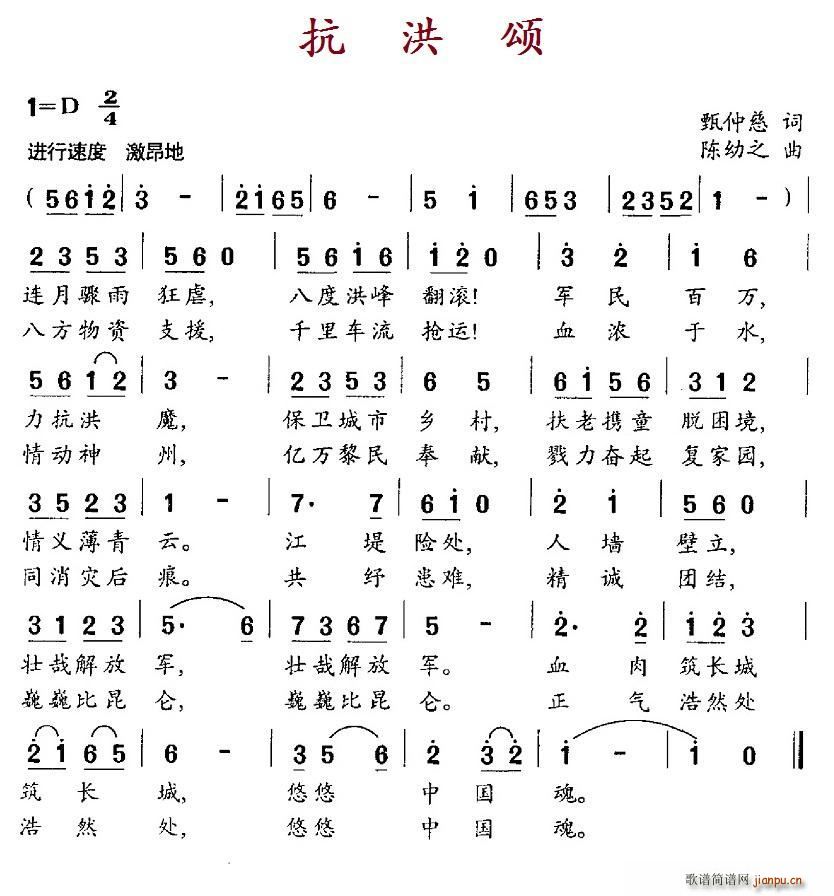 抗 洪 颂
1=D 2/4
甄仲慈 词
进行速度 激昂地
陈幼之 曲
( 5 6 1̇ 2̇ | 3̇ - | 2̇ 1̇ 6 5 | 6 - | 5 1̇ | 6 5 3 | 2 3 5 2 | 1 - ) |
2 3 5 3 | 5 6 0 | 5 6 1̇ 6 | 1̇ 2̇ 0 | 3̇ 2̇ | 1̇ 6 |
连月骤雨 狂虐, 八度洪峰 翻滚! 军 民 百 万,
八方物资 支援, 千里车流 抢运! 血 浓 于 水,
5 6 1̇ 2 | 3 - | 2 3 5 3 | 6 5 | 6 1̇ 5 6 | 3 1 2 |
力抗洪 魔, 保卫城市 乡 村, 扶老携童 脱困境,
情动神 州, 亿万黎民 奉 献, 戮力奋起 复家园,
3 5 2 3 | 1 - | 7. 7 | 6 1̇ 0 | 2̇ 1̇ | 5 6 0 |
情义薄青 云。 江 堤 险处, 人 墙 壁立,
同消灾后 痕。 共 纾 患难, 精 诚 团结,
3 1 2 3 | 5. 6 | 7 3 6 7 | 5 - | 2̇. 2̇ | 1̇ 2̇ 3̇ |
壮哉解放 军, 壮哉解放 军。 血 肉 筑长城
巍巍比昆 仑, 巍巍比昆 仑。 正 气 浩然处
2̇ 1̇ 6 5 | 6 - | 3 5 6 | 2̇ 3̇ 2̇ | 1̇ - | 1̇ 0 ‖
筑 长 城, 悠悠 中 国 魂。
浩 然 处, 悠悠 中 国 魂。
歌谱简谱网
jianpu.cn